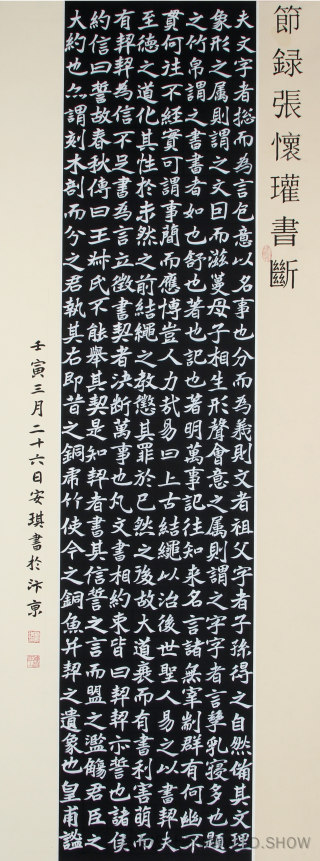 節録張懷瓘書斷
夫文字者揔而為言包意以名事也分而為義則文者祖父字者子孫得之自然俻其文理
象形之属則謂之文因而滋蔓母子相生形聲會意之属則謂之字字者言孳乳寖多也題
之竹帛謂之書書者如也舒也著也記也著明萬事記往知来名言諸無宰制群有何幽不
貫何往不經實可謂事簡而應博豈人力哉易曰上古結繩以治後世聖人易之以書契夫
至德之道化其性於未然之前結繩之教懲其罪於已然之後故大道衰而有書利害萌而
有契契為信不足書為言立徵書契者決断萬事也凡文書相約束皆曰契契亦誓也諸侯
約信曰誓故春秋傳曰王叔氏不能舉其契是知契者書其信誓之言而盟之濫觴君臣之
大約也亦謂刻木剖而分之君執其右即昔之銅虎竹使今之銅魚并契之遺象也皇甫謐
壬寅三月二十六日安琪書於汴京